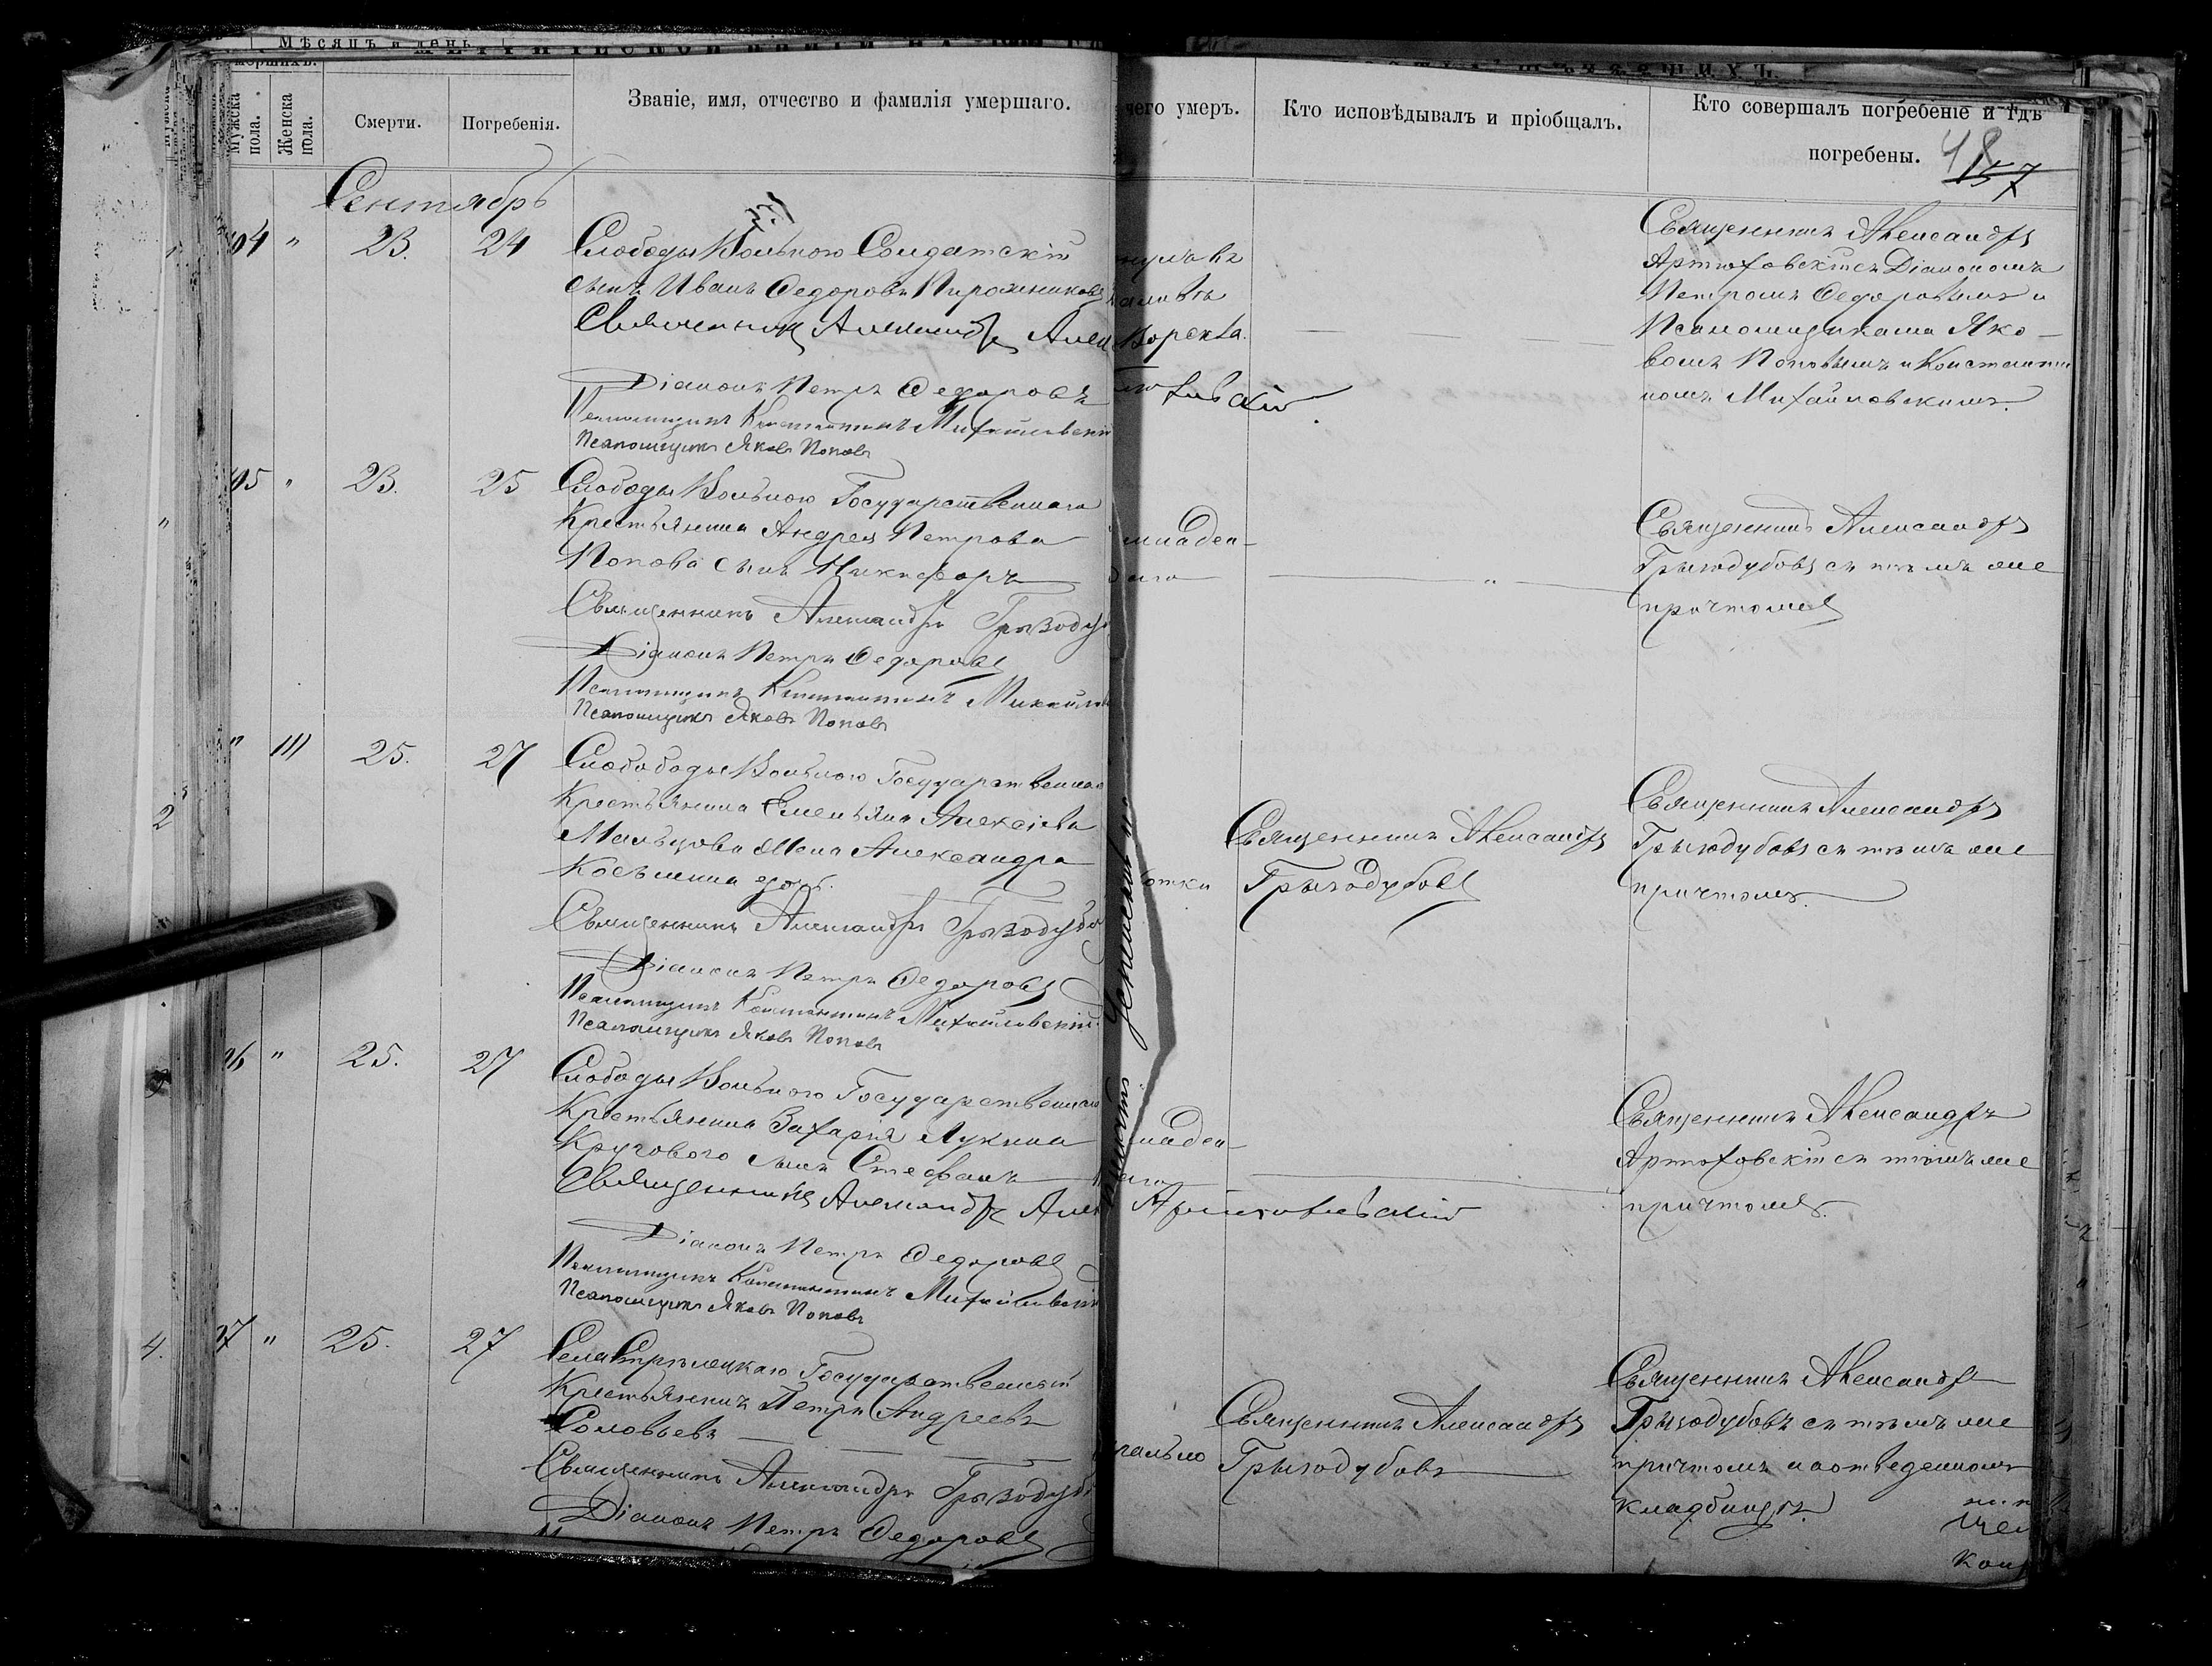 Мѣсяцъ и день
мершихъ.
Мужска пола.
Женска пола.
Смерти.
Погребенія.
Званіе, имя, отчество и фамилія умершаго.
чего умеръ.
Кто исповѣдывалъ и пріобщалъ.
Кто совершалъ погребеніе и гдѣ
погребены.
48
157
Сентябрь
104 " 23. 24
Слободы Вольною Солдатскій
сынъ Иванъ Федоровъ Пирожниковъ
Священникъ Александръ
Діаконъ Петръ Федоровъ
Псаломщикъ Константинъ Михайловскій
Псаломщикъ Яковъ Поповъ
Священникъ Александръ
Артюховскій съ Діакономъ
Петромъ Федоровымъ и
Псаломщиками Яко-
вомъ Поповымъ и Константи
номъ Михайловскимъ.
105 " 23. 25
Слободы Вольною Государственнаго
Крестьянина Андрея Петрова
Попова сынъ Никифоръ
Священникъ Александръ Грызоду
Діаконъ Петръ Федоровъ
Псаломщикъ Константинъ Михайло
Псаломщикъ Яковъ Поповъ
младен-
Священникъ Александръ
Грызодубовъ съ тѣмъ же
причтомъ
" 111 25. 27
Слободы Вольною Государственна
Крестьянина Емельяна Алексѣева
Мальцова жена Александра
Косьмина
Священникъ Александръ Грызодубо
Діаконъ Петръ Федоровъ
Псаломщикъ Константинъ Михайловскій
Псаломщикъ Яковъ Поповъ
отки
Священникъ Александръ
Грызодубовъ
Священникъ Александръ
Грызодубовъ съ тѣмъ же
причтомъ.
2
" 25. 27
Слободы Вольною Государственнаго
Крестьянина Захарія Лукина
Кругового сынъ Стефанъ
Священникъ Александръ
Артюховскій
Діаконъ Петръ Федоровъ
Псаломщикъ Константинъ Михайловскій
Псаломщикъ Яковъ Поповъ
младен-
Священникъ Александръ
Артюховскій съ тѣмъ же
причтомъ.
4. " 25. 27
Села Стрѣлецкаго Государственный
Крестьянинъ Петръ Андреевъ
Соловьевъ
Священникъ Александръ Грызодуб
Діаконъ Петръ Федоровъ
Священникъ Александръ
Грызодубовъ
Священникъ Александръ
Грызодубовъ съ тѣмъ же
причтомъ на отведенномъ
кладбищѣ.